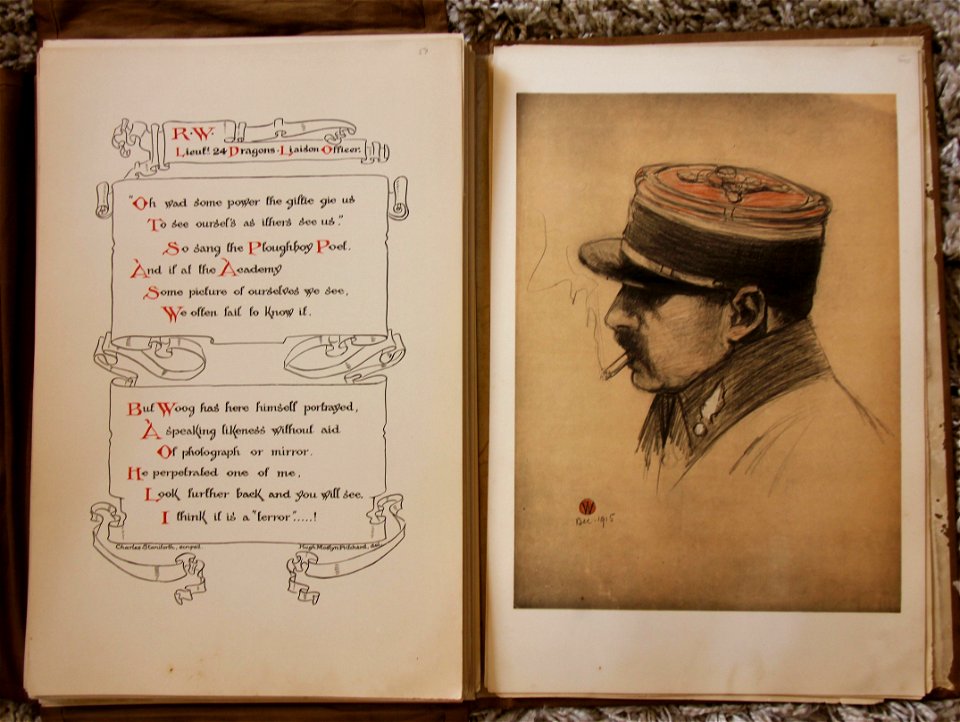 R. W.
Lieut! 24 Dragons. Liaison Officer.
"Oh wad some power the giftie gie us
To see oursel's as ithers see us."
So sang the Ploughboy Poet.
And if at the Academy
Some picture of ourselves we see,
We often fail to know it.
But Woog has here himself portrayed,
A speaking likeness without aid
Of photograph or mirror.
He perpetrated one of me,
Look further back and you will see.
I think it is a "terror".....!
Charles Staniforth, scripsit. Hugh Mostyn Pritchard, delt.
W
Dec. 1915